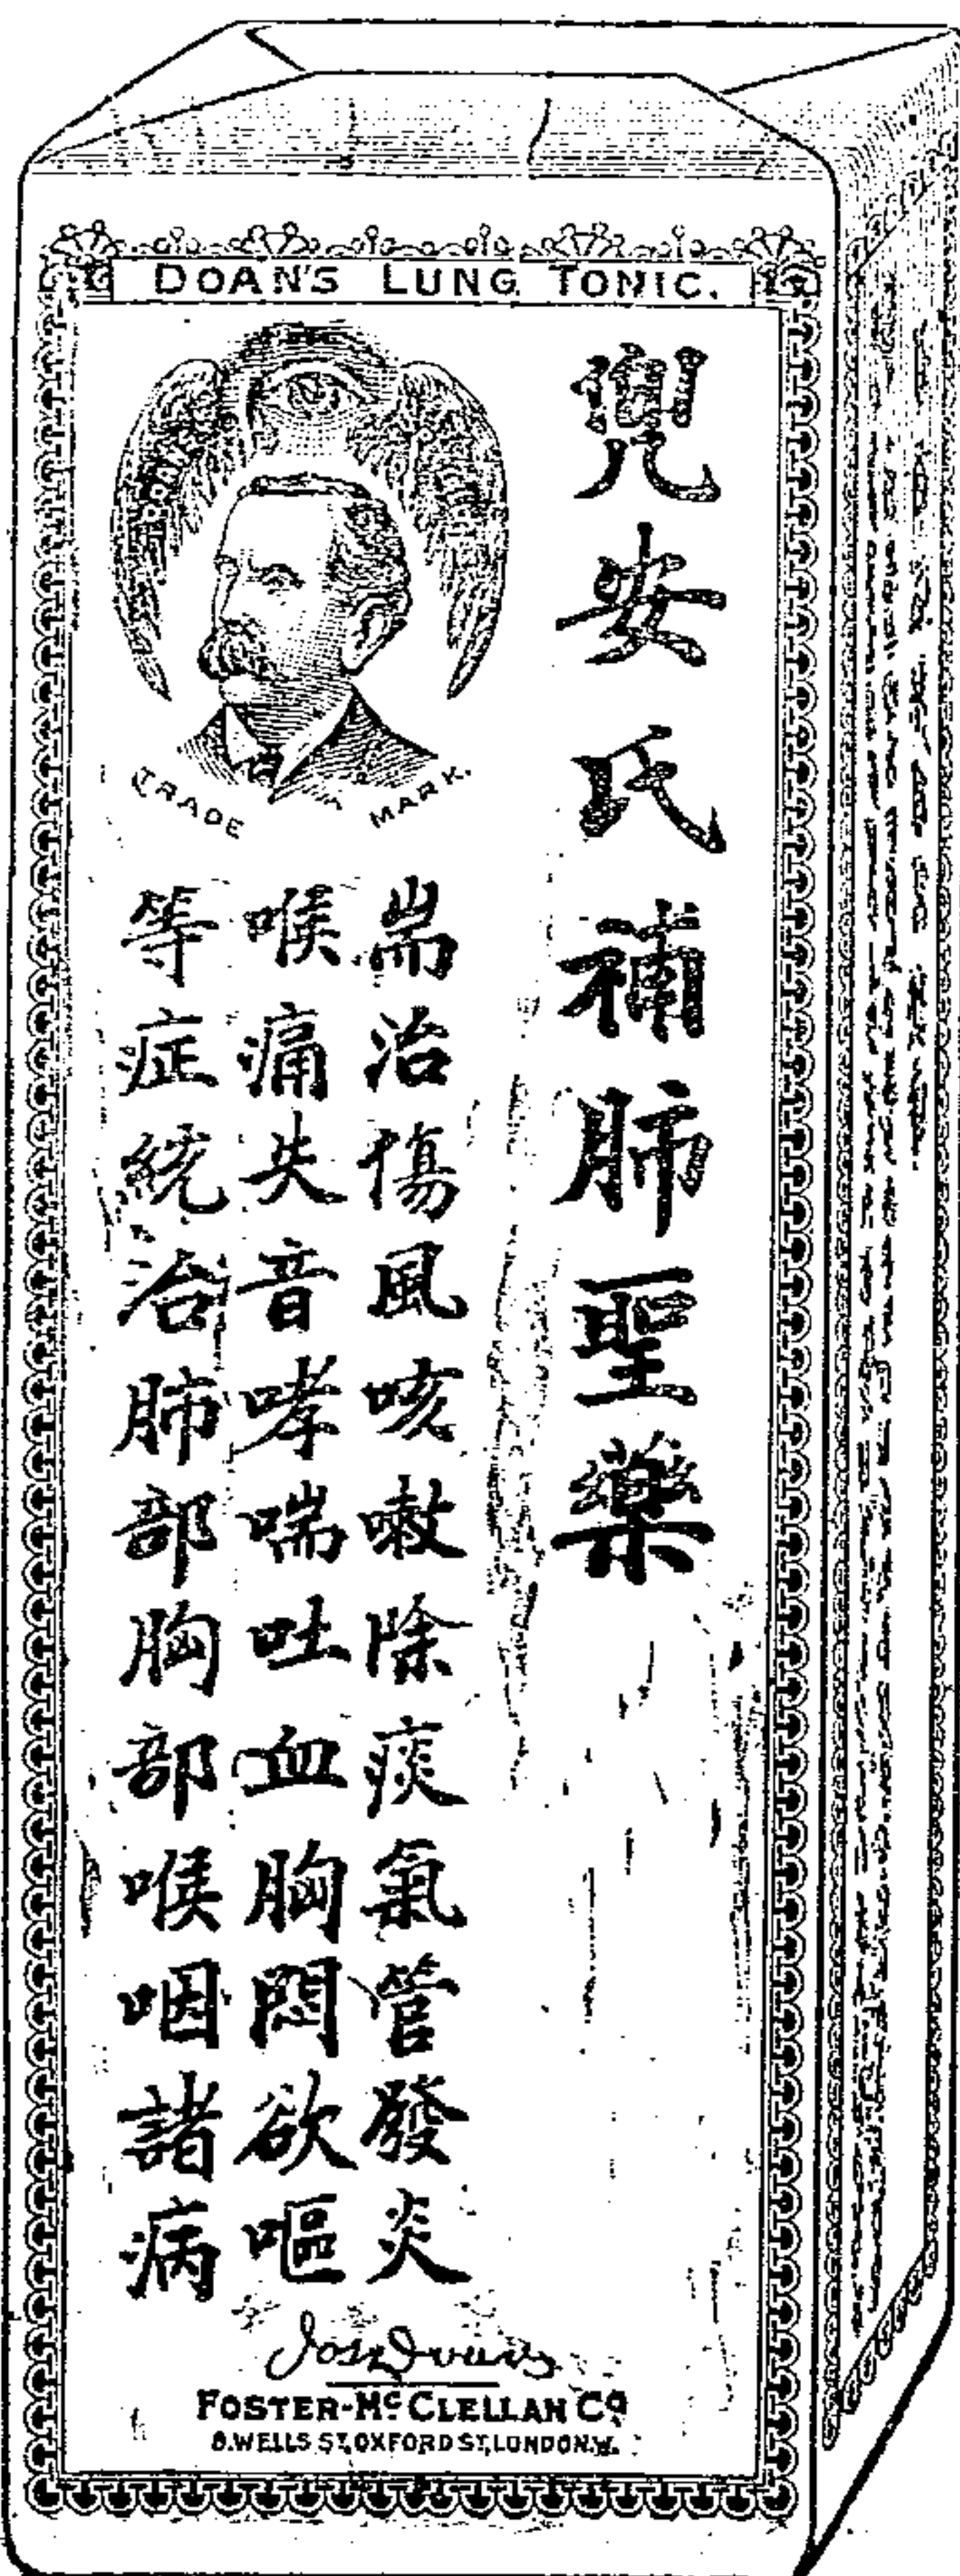 DOAN'S LUNG TONIC.
兜安氏補肺聖藥
TRADE MARK.
耑治傷風咳嗽除痰氣管發炎
喉痛失音哮喘吐血胸悶欲嘔
等症統治肺部胸部喉咽諸病
FOSTER-McCLELLAN Co
8.WELLS ST,OXFORD ST,LONDON.W.